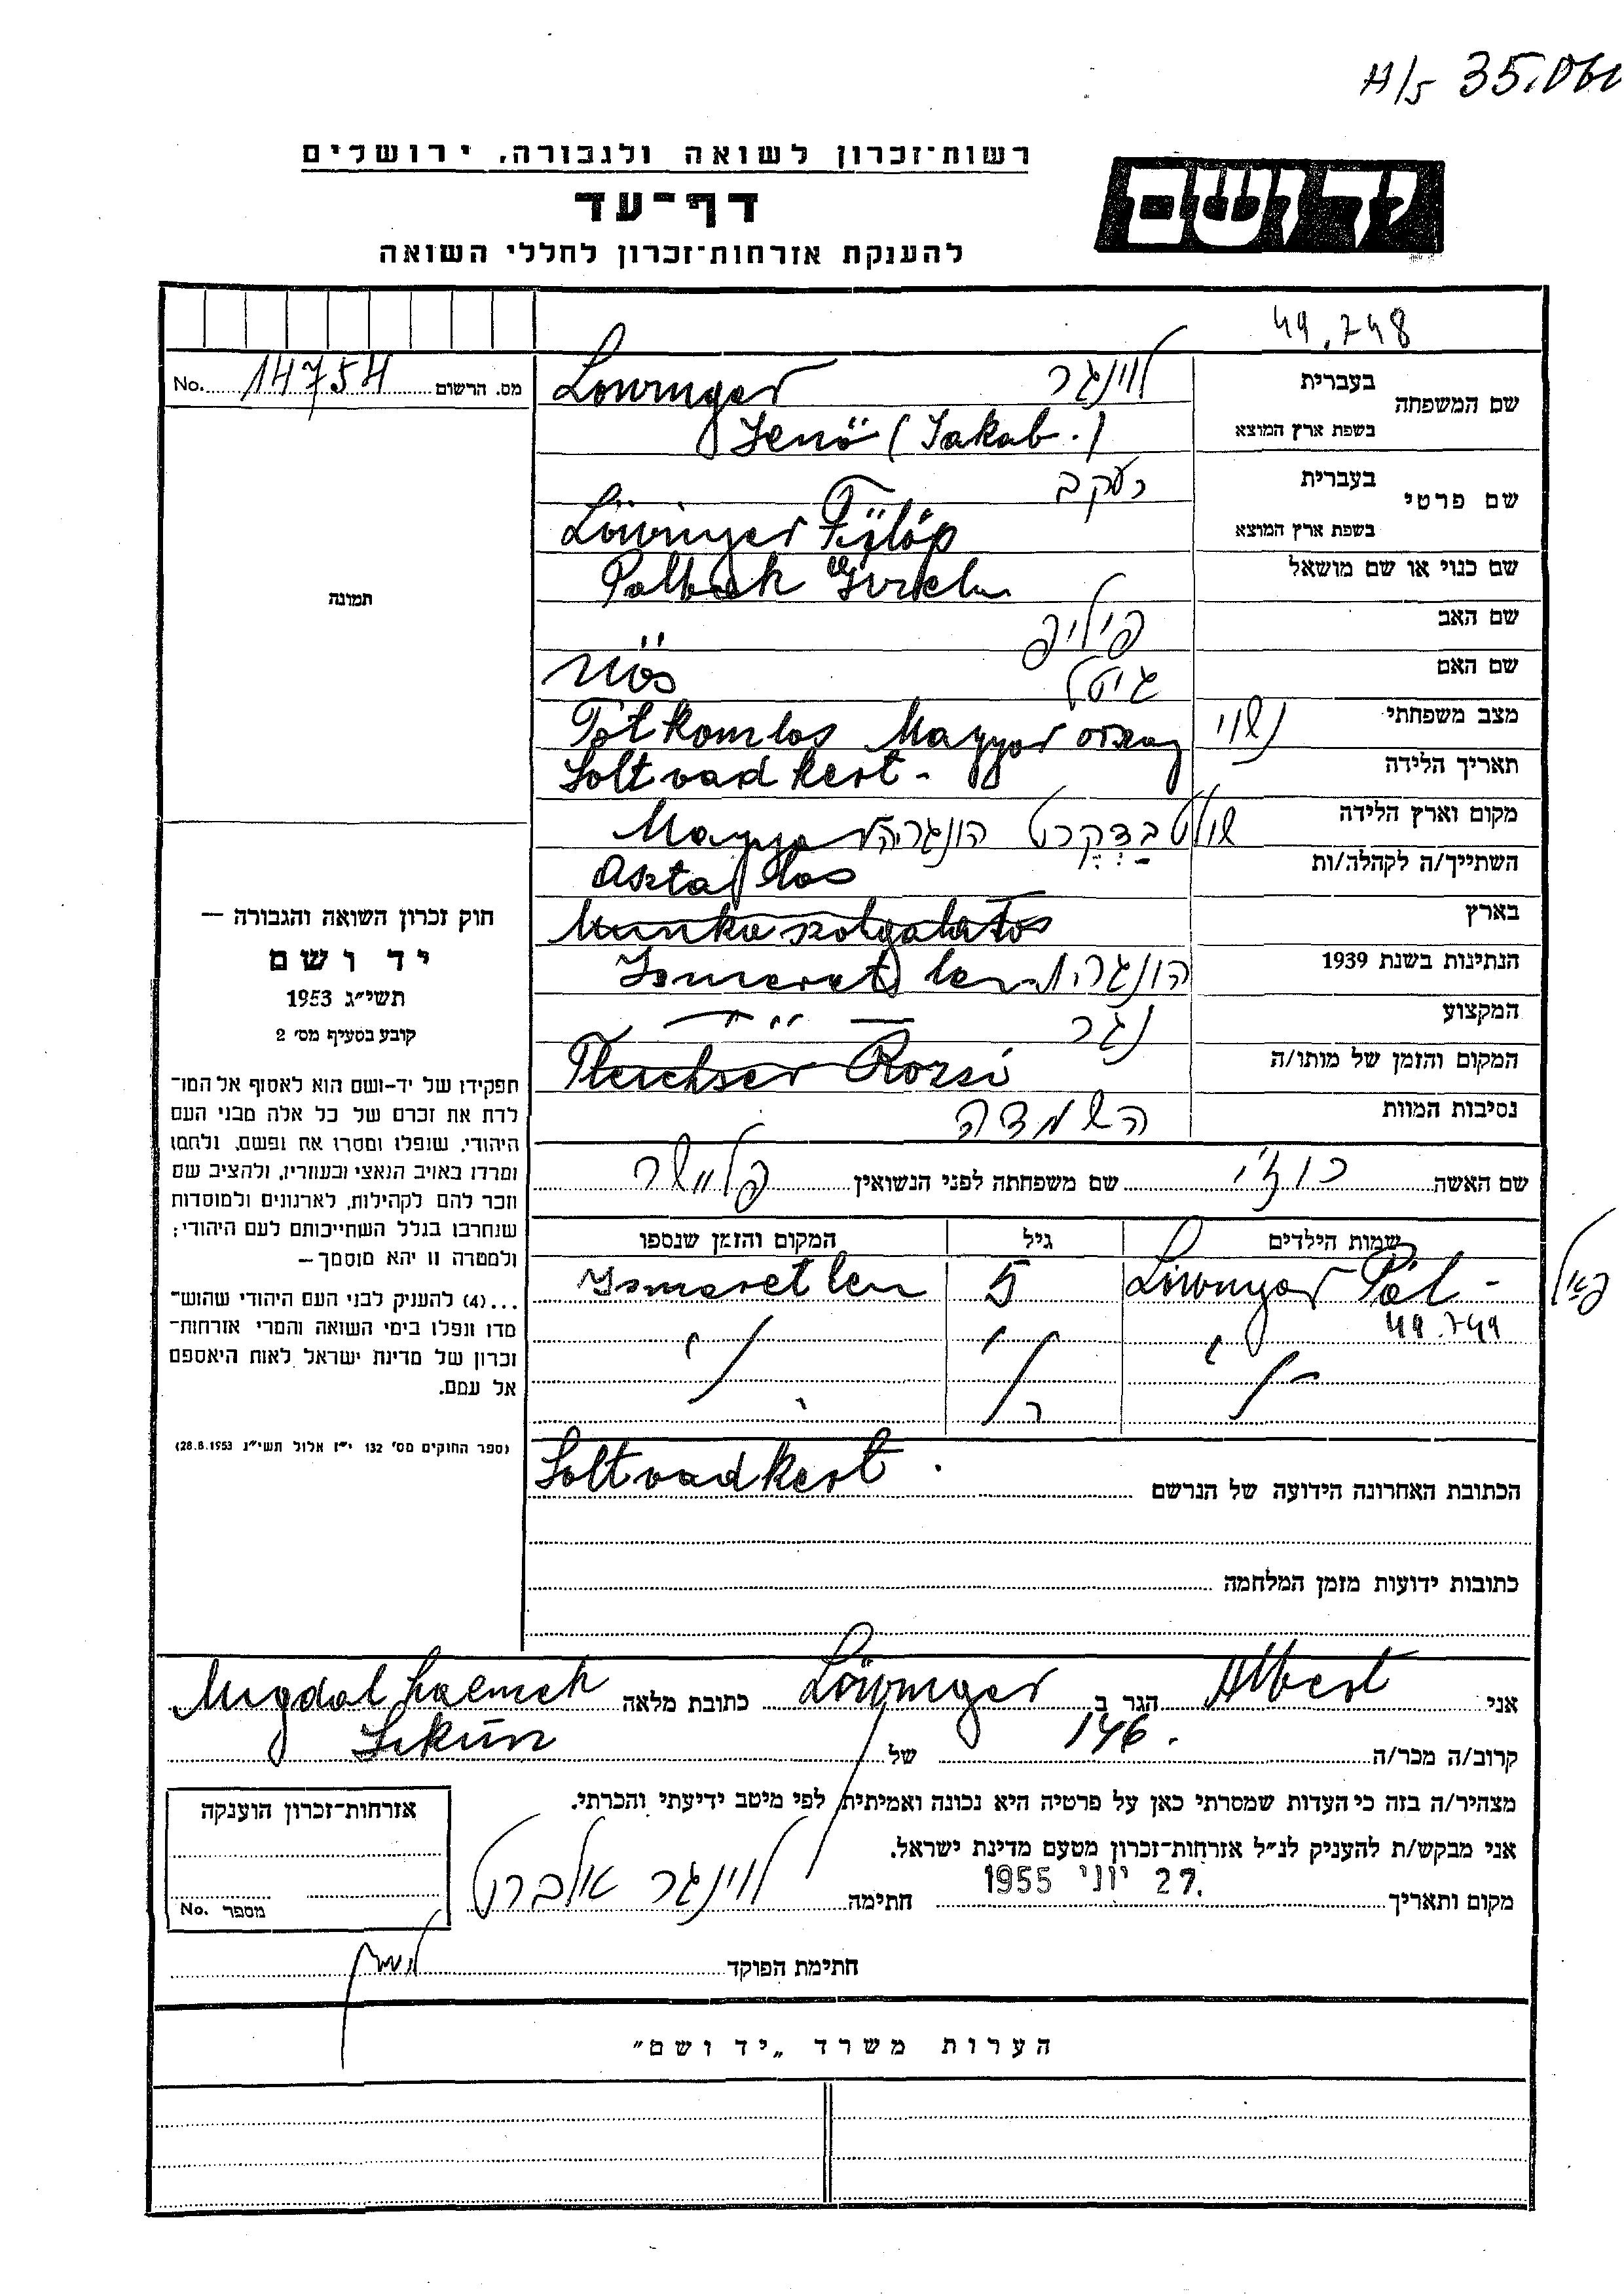 35.061
רשות־זכרון לשואה ולגבורה, ירושלים
יד ושם
דף־עד
להענקת אזרחות־זכרון לחללי השואה
49.748
No. 14754 מס. הרשום
שם המשפחה
בעברית
לוינגר
Löwinger
בשפת ארץ המוצא
Jenö (Jakab.)
שם פרטי
בעברית
יעקב
בשפת ארץ המוצא
Löwinger Fülöp
שם כנוי או שם מושאל
שם האב
פיליפ
שם האם
גיטל
nös
מצב משפחתי
נשוי
Tótkomlos Magyarorszag
תאריך הלידה
Soltvadkert -
מקום וארץ הלידה
השתייך/ה לקהלה/ות
שולטבדקרט הונגריה
Asztalos
בארץ
Munkaszolgalatos
הנתינות בשנת 1939
הונגרית
Ismeretlen
המקצוע
נגר
המקום והזמן של מותו/ה
Rozsi
נסיבות המוות
השמדה
שם האשה רוזי שם משפחתה לפני הנשואין פליישר
שמות הילדים גיל המקום והזמן שנספו
Löwinger Pál - 5 Ismeretlen
פאל
49.749
הכתובת האחרונה הידועה של הנרשם Soltvadkert
כתובות ידועות מזמן המלחמה
תמונה
חוק זכרון השואה והגבורה —
יד ושם
תשי״ג 1953
קובע בסעיף מס׳ 2
תפקידו של יד-ושם הוא לאסוף אל המו־
לדת את זכרם של כל אלה מבני העם
היהודי, שנפלו ומסרו את נפשם, נלחמו
ומרדו באויב הנאצי ובעוזריו, ולהציב שם
וזכר להם לקהילות, לארגונים ולמוסדות
שנחרבו בגלל השתייכותם לעם היהודי;
ולמטרה זו יהא מוסמך —
...(4) להעניק לבני העם היהודי שהוש־
מדו ונפלו בימי השואה והמרי אזרחות־
זכרון של מדינת ישראל לאות היאספם
אל עמם.
(ספר החוקים מס׳ 132 י״ז אלול תשי״ג 28.8.1953)
אני Albert הגר ב Löwinger כתובת מלאה Migdal haemek
קרוב/ה מכר/ה 146. של Sikún
מצהיר/ה בזה כי העדות שמסרתי כאן על פרטיה היא נכונה ואמיתית לפי מיטב ידיעתי והכרתי.
אני מבקש/ת להעניק לנ״ל אזרחות־זכרון מטעם מדינת ישראל.
מקום ותאריך 27. יוני 1955 חתימה לוינגר אלברט
אזרחות־זכרון הוענקה
No. מספר
חתימת הפוקד
הערות משרד „יד ושם״